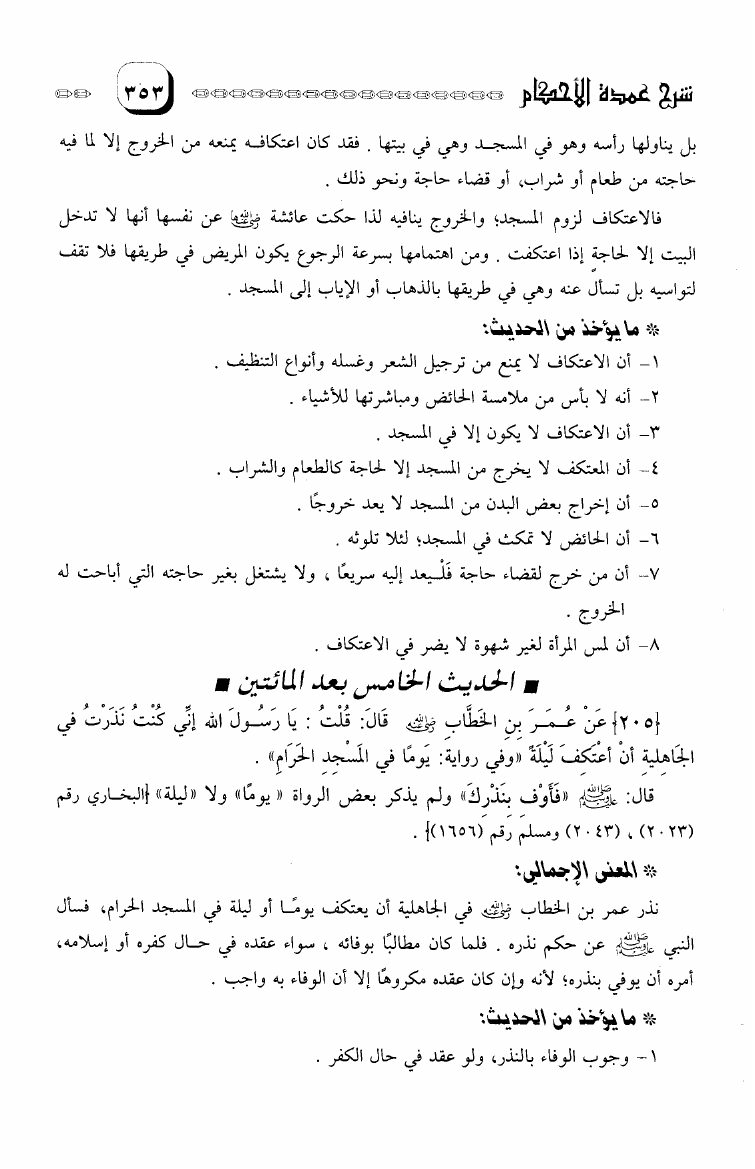 شرح عمدة الأحكام ٣٥٣
بل يناولها رأسه وهو في المسجد وهي في بيتها . فقد كان اعتكافه يمنعه من الخروج إلا لما فيه
حاجته من طعام أو شراب، أو قضاء حاجة ونحو ذلك .
فالاعتكاف لزوم المسجد؛ والخروج ينافيه لذا حكت عائشة رضي الله عنها عن نفسها أنها لا تدخل
البيت إلا لحاجةٍ إذا اعتكفت . ومن اهتمامها بسرعة الرجوع يكون المريض في طريقها فلا تقف
لتواسيه بل تسأل عنه وهي في طريقها بالذهاب أو الإياب إلى المسجد .
* ما يؤخذ من الحديث:
١- أن الاعتكاف لا يمنع من ترجيل الشعر وغسله وأنواع التنظيف .
٢- أنه لا بأس من ملامسة الحائض ومباشرتها للأشياء .
٣- أن الاعتكاف لا يكون إلا في المسجد .
٤- أن المعتكف لا يخرج من المسجد إلا لحاجة كالطعام والشراب .
٥- أن إخراج بعض البدن من المسجد لا يعد خروجًا .
٦- أن الحائض لا تمكث في المسجد؛ لئلا تلوثه .
٧- أن من خرج لقضاء حاجة فَلْيعد إليه سريعًا ، ولا يشتغل بغير حاجته التي أباحت له
الخروج .
٨- أن لمس المرأة لغير شهوة لا يضر في الاعتكاف .
■ الحديث الخامس بعد المائتين ■
{٢٠٥} عَنْ عُمَرَ بنِ الخَطَّابِ رضي الله عنه قَالَ: قُلْتُ : يَا رَسُولَ الله إنِّي كُنْتُ نَذَرْتُ في
الجَاهِلية أنْ أعْتَكِفَ لَيْلَةً «وفي رواية: يَومًا في المَسْجِدِ الحَرَامِ» .
قال: ﷺ «فَأَوْفِ بِنَذْرِكَ» ولم يذكر بعض الرواة « يومًا» ولا «ليلة» {البخاري رقم
(٢٠٢٣) ، (٢٠٤٣) ومسلم رقم (١٦٥٦)} .
* المعنى الإجمالي:
نذر عمر بن الخطاب رضي الله عنه في الجاهلية أن يعتكف يومًا أو ليلة في المسجد الحرام، فسأل
النبي ﷺ عن حكم نذره . فلما كان مطالبًا بوفائه ، سواء عقده في حال كفره أو إسلامه،
أمره أن يوفي بنذره؛ لأنه وإن كان عقده مكروهًا إلا أن الوفاء به واجب .
* ما يؤخذ من الحديث:
١- وجوب الوفاء بالنذر، ولو عقد في حال الكفر .